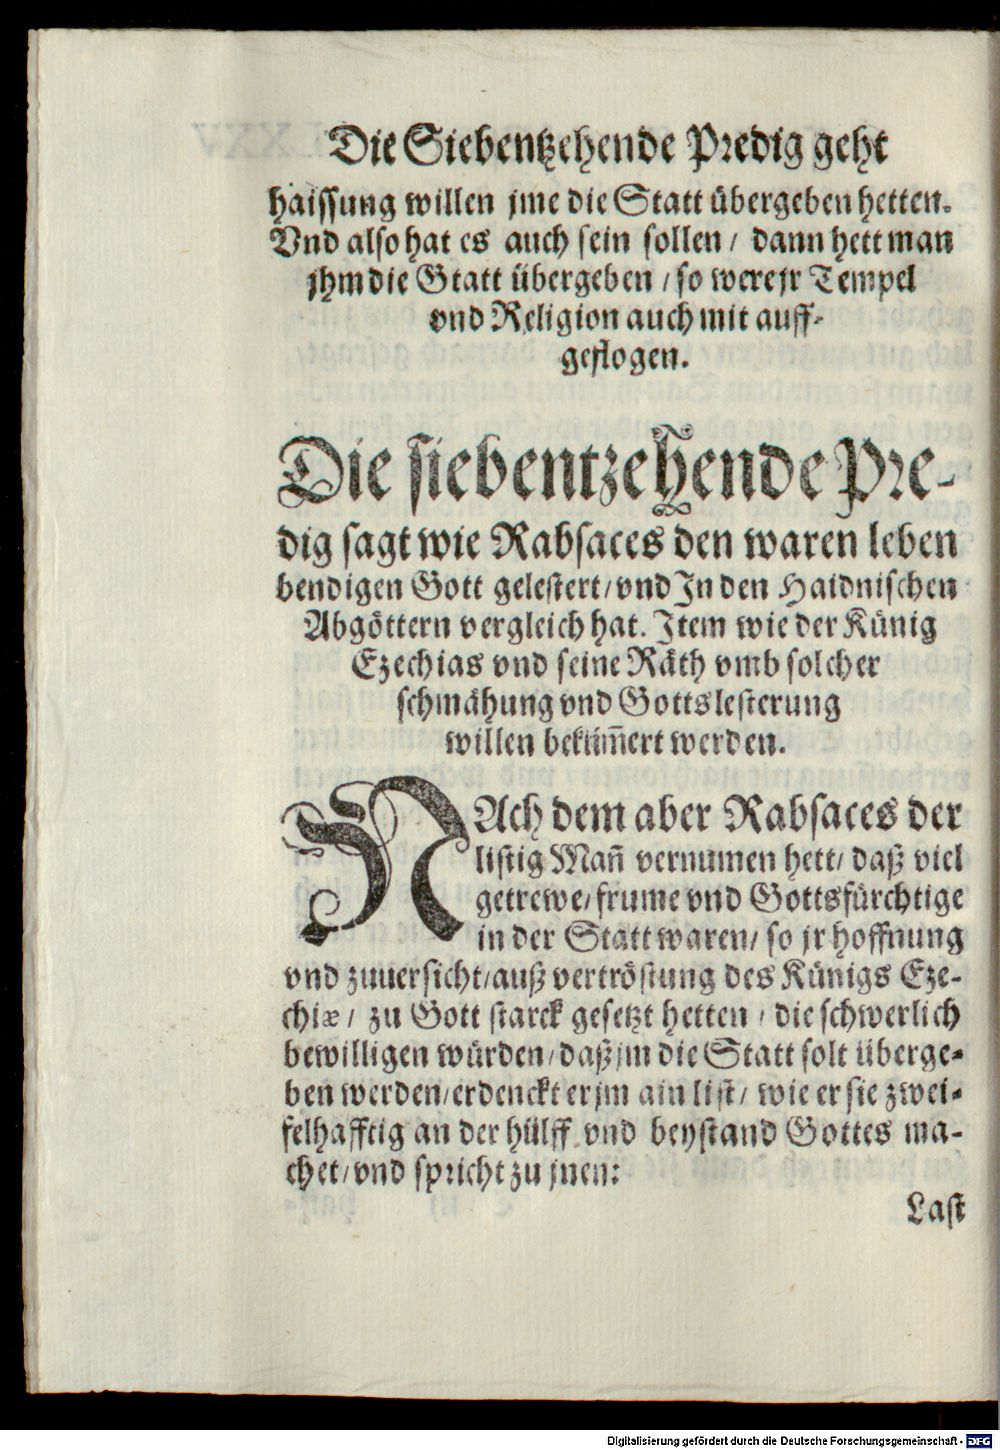 Die Siebentzehende Predig geht
haissung willen jme die Statt übergeben hetten.
Vnd also hat es auch sein sollen / dann hett man
jhm die Gtatt übergeben / so were jr Tempel
vnd Religion auch mit auff-
geflogen.
Die siebentzehende Pre-
dig sagt wie Rabsaces den waren leben
bendigen Gott gelestert / vnd In den Haidnischen
Abgöttern vergleich hat. Item wie der Künig
Ezechias vnd seine Räth vmb solcher
schmähung vnd Gottslesterung
willen bekűm̃ert werden.
NAch dem aber Rabsaces der
listig Mañ vernumen hett / daß viel
getrewe / frume vnd Gottsfürchtige
in der Statt waren / so jr hoffnung
vnd zuuersicht / auß vertröstung des Künigs Eze-
chiæ / zu Gott starck gesetzt hetten / die schwerlich
bewilligen würden / daß jm die Statt solt überge-
ben werden / erdenckt er jm ain list / wie er sie zwei-
felhafftig an der hülff vnd beystand Gottes ma-
chet / vnd spricht zu jnen:
Last
Digitalisierung gefördert durch die Deutsche Forschungsgemeinschaft - DFG